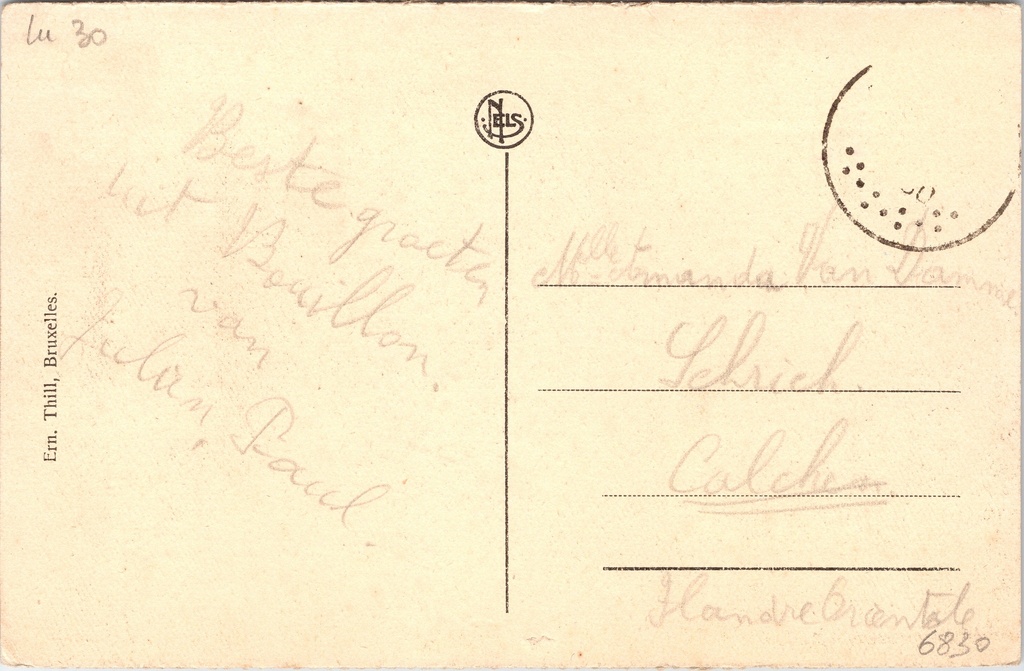 lu 30
Beste groeten
uit Bouillon.
van
Julian, Paul.
Ern. Thill, Bruxelles.
NELS
Mlle Amanda Van Damme
Schrieck.
Calcken
Flandre Orientale
6830